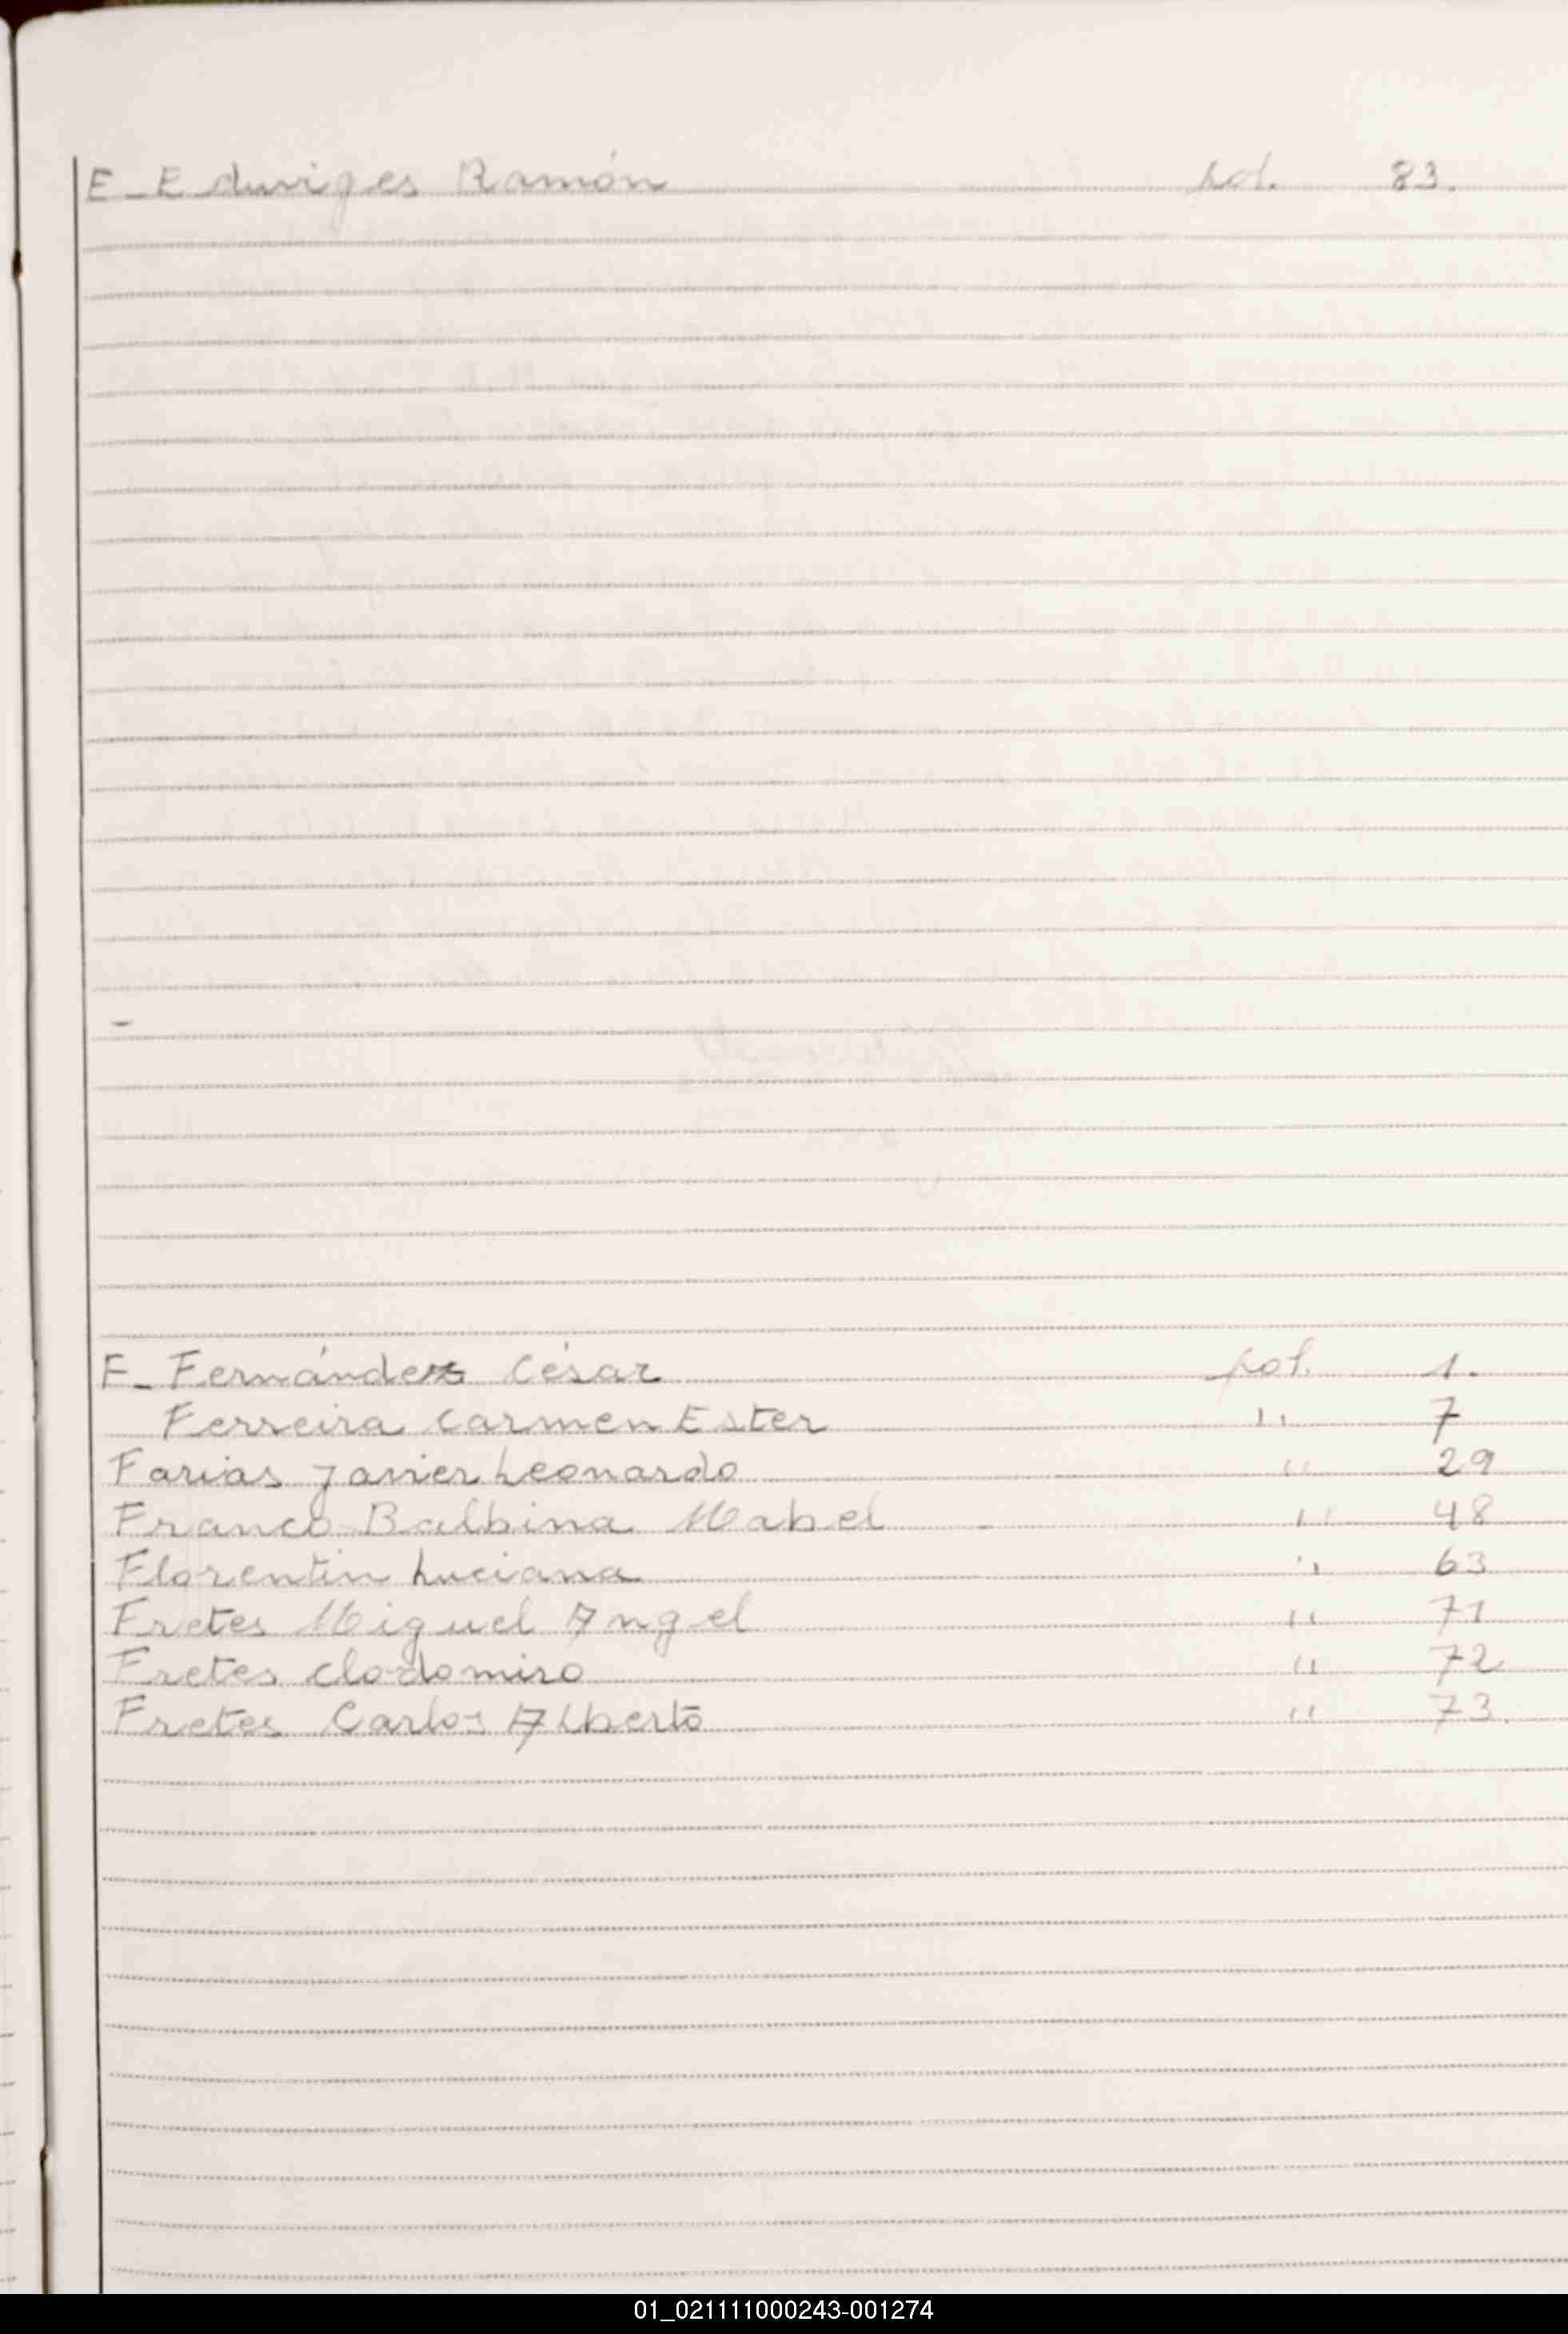 E-Eduviges Ramón fol. 83.
F-Fernández César fol. 1.
Ferreira Carmen Ester " 7
Farias Javier Leonardo " 29
Franco Balbina Mabel " 48
Florentin Luciana " 63
Fretes Miguel Angel " 71
Fretes Clodomiro " 72
Fretes Carlos Alberto " 73.
01_021111000243-001274